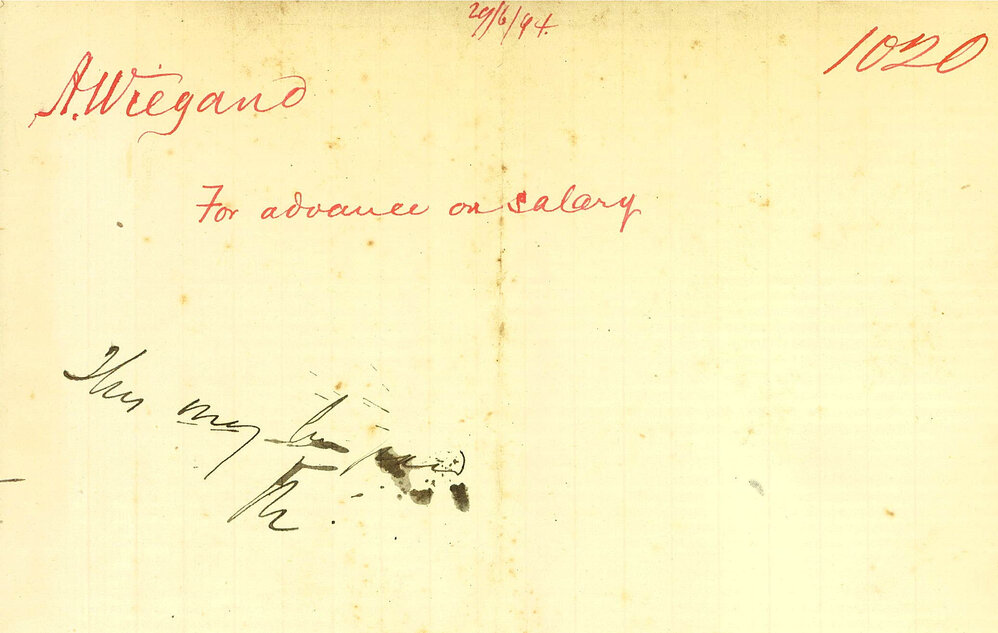 29/6/94.
1020
A. Wiegand
For advance on salary
This may be paid